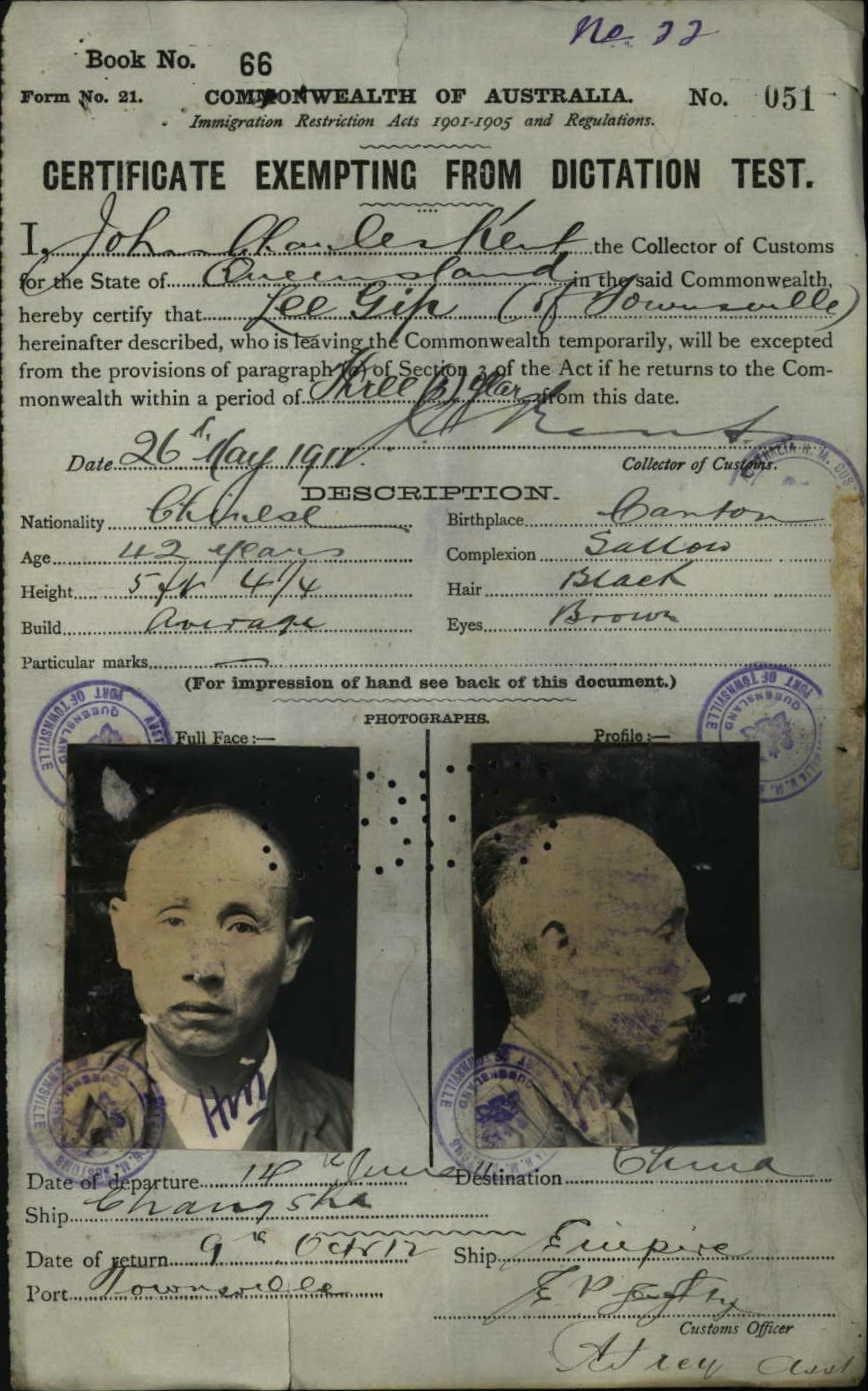 No. 22
Book No. 66
Form No. 21. COMMONWEALTH OF AUSTRALIA. No. 051
Immigration Restriction Acts 1901-1905 and Regulations.
CERTIFICATE EXEMPTING FROM DICTATION TEST.
I, John Charles Kent the Collector of Customs
for the State of Queensland in the said Commonwealth,
hereby certify that Lee Gip (of Townsville)
hereinafter described, who is leaving the Commonwealth temporarily, will be excepted
from the provisions of paragraph of Section 3 of the Act if he returns to the Com-
monwealth within a period of Three (3) years from this date.
Date 26th May 1911 Collector of Customs.
DESCRIPTION.
Nationality Chinese Birthplace Canton
Age 42 years Complexion Sallow
Height 5 ft 4 1/4 Hair Black
Build Average Eyes Brown
Particular marks
(For impression of hand see back of this document.)
PHOTOGRAPHS.
Full Face:— Profile:—
PORT OF TOWNSVILLE
QUEENSLAND
PORT OF TOWNSVILLE
QUEENSLAND
Date of departure 14th June 11 Destination China
Ship Changsha
Date of return 9th Octr 12 Ship Empire
Port Townsville
Customs Officer